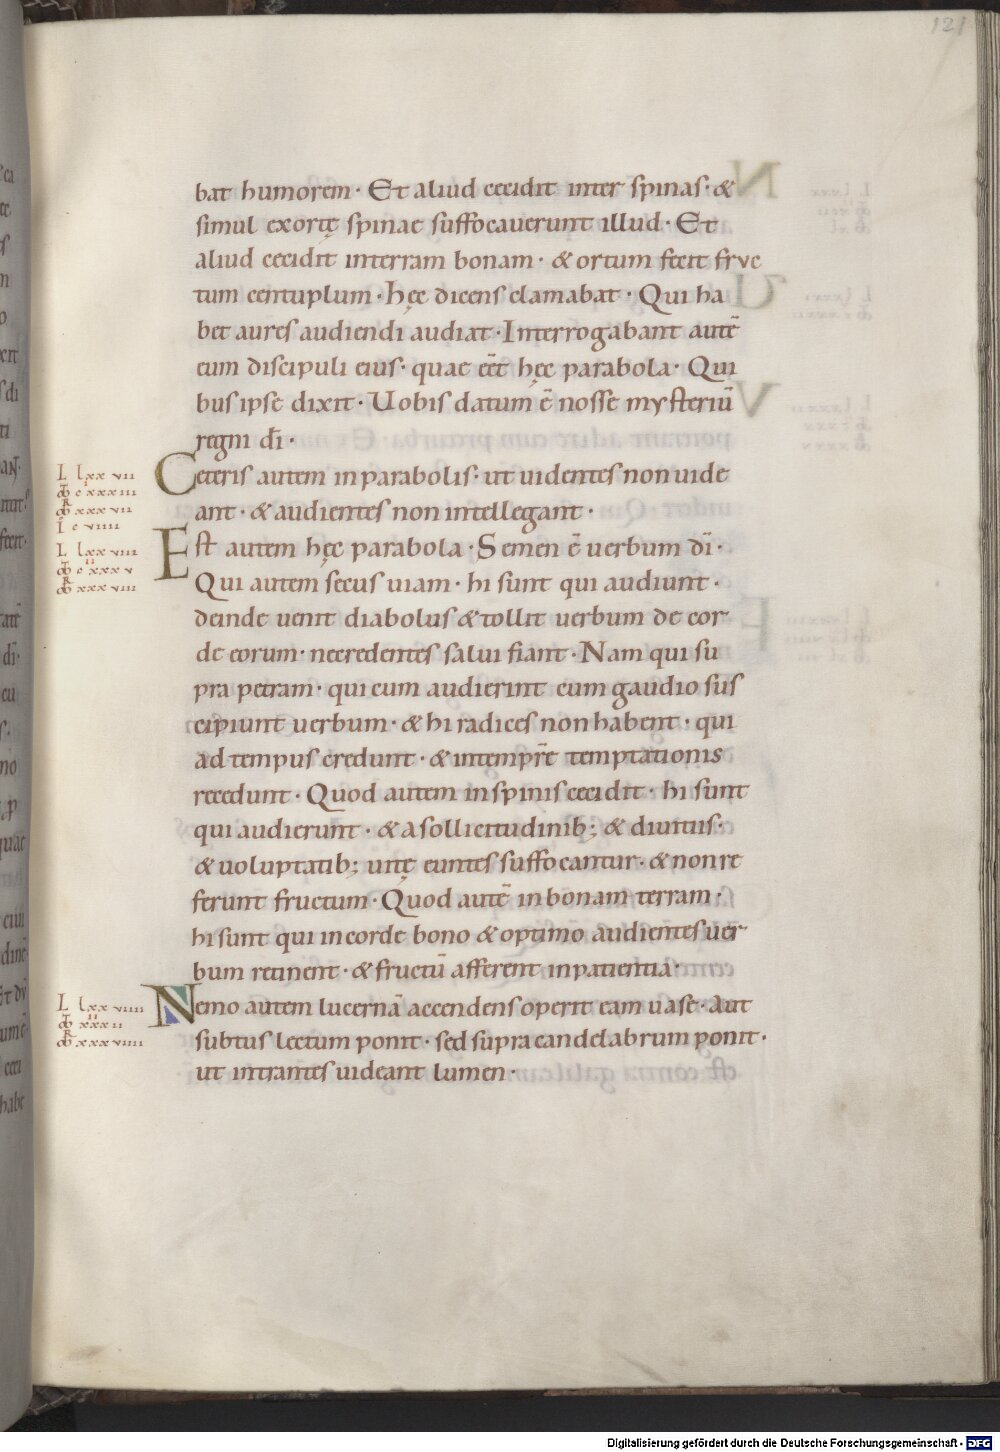 121
bat humorem · Et aliud cecidit inter spinas · &
simul exortę spinae suffocauerunt illud · Et
aliud cecidit interram bonam · & ortum fecit fruc
tum centuplum · hęc dicens clamabat · Qui ha
bet aures audiendi audiat · Interrogabant autē
eum discipuli eius · quae eēt hęc parabola · Qui
bus ipse dixit · Uobis datum ē nosse mysteriū
regni dī ·
Ceteris autem in parabolis · ut uidentes non uide
ant · & audientes non intellegant ·
Est autem hęc parabola · Semen ē uerbum dī ·
Qui autem secus uiam · hi sunt qui audiunt ·
deinde uenit diabolus & tollit uerbum de cor
de eorum · ne credentes salui fiant · Nam qui su
pra petram · qui cum audierint cum gaudio sus
cipiunt uerbum · & hi radices non habent · qui
ad tempus credunt · & intempr̄e temptationis
recedunt · Quod autem in spinis cecidit · hi sunt
qui audierunt · & a sollicitudinib; & diuitiis ·
& uoluptatib; uitę euntes suffocantur · & non re
ferunt fructum · Quod autē in bonam terram ·
hi sunt qui in corde bono & optimo audientes uer
bum retinent · & fructū afferent in patientia ·
Nemo autem lucernā accendens operit eam uase · Aut
subtus lectum ponit · sed supra candelabrum ponit ·
ut intrantes uideant lumen ·
L lxx vii
L lxx viii
L lxx viiii
Digitalisierung gefördert durch die Deutsche Forschungsgemeinschaft - DFG